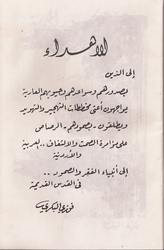 الاهداء
إلى الذين
بصدورهم وسواعدهم وجيوبهم العارية
يواجهون أعتى مخططات التهجير والتهويد
ويطلقون .. بصمودهم .. الرصاص
على مؤامرة الصمت والالتفاف .. العربية
والأردنية
إلى أنبياء الفقر والصمود ..
في القدس القديمة
فوزي البكري